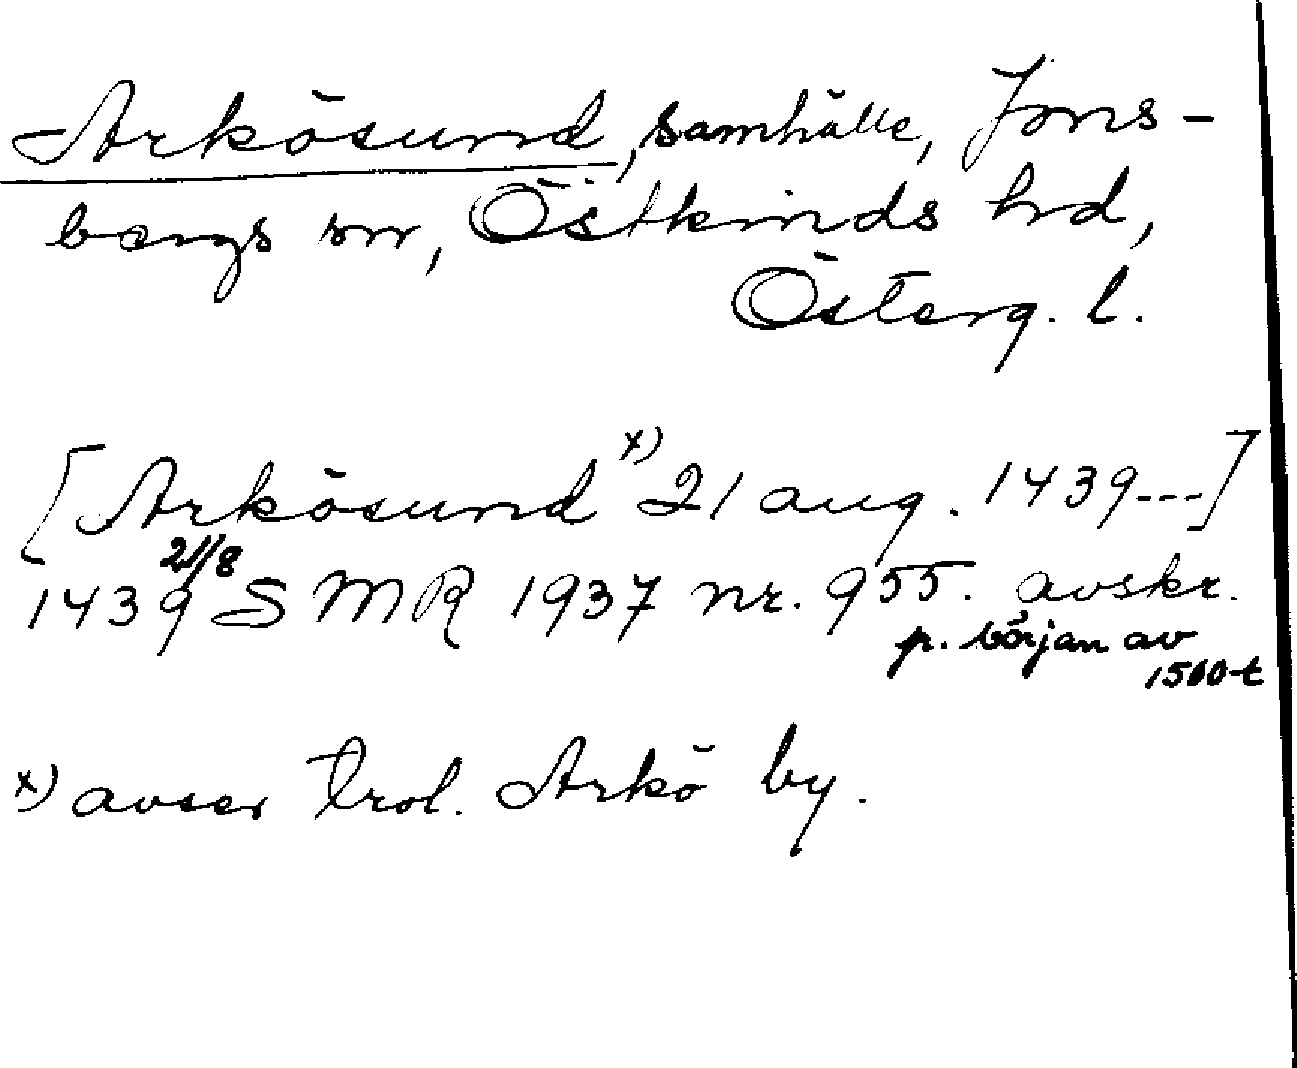 Arkösund, samhälle, Jons-
bergs sn, Östkinds hd,
Österg. l.
[Arkösund x) 21 aug. 1439---]
21/8
1439 SMR 1937 nr. 955. avskr.
p. början av
1500-t
x) avser trol. Arkö by.